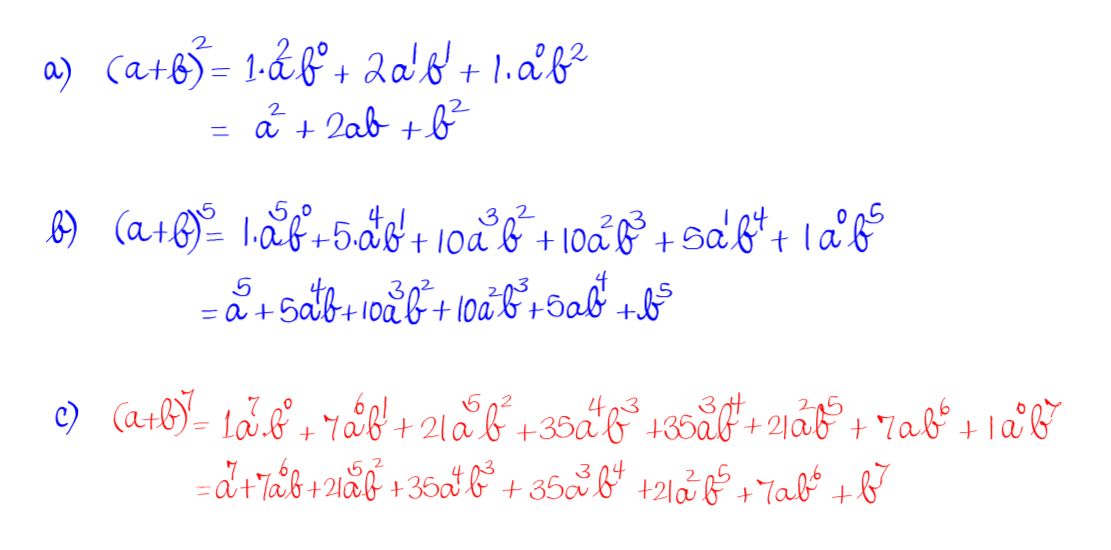 a) (a+b)² = 1·a²b⁰ + 2a¹b¹ + 1·a⁰b²
= a² + 2ab + b²
b) (a+b)⁵ = 1·a⁵b⁰ + 5·a⁴b¹ + 10a³b² + 10a²b³ + 5a¹b⁴ + 1a⁰b⁵
= a⁵ + 5a⁴b + 10a³b² + 10a²b³ + 5ab⁴ + b⁵
c) (a+b)⁷ = 1a⁷·b⁰ + 7a⁶b¹ + 21a⁵b² + 35a⁴b³ + 35a³b⁴ + 21a²b⁵ + 7ab⁶ + 1a⁰b⁷
= a⁷ + 7a⁶b + 21a⁵b² + 35a⁴b³ + 35a³b⁴ + 21a²b⁵ + 7ab⁶ + b⁷